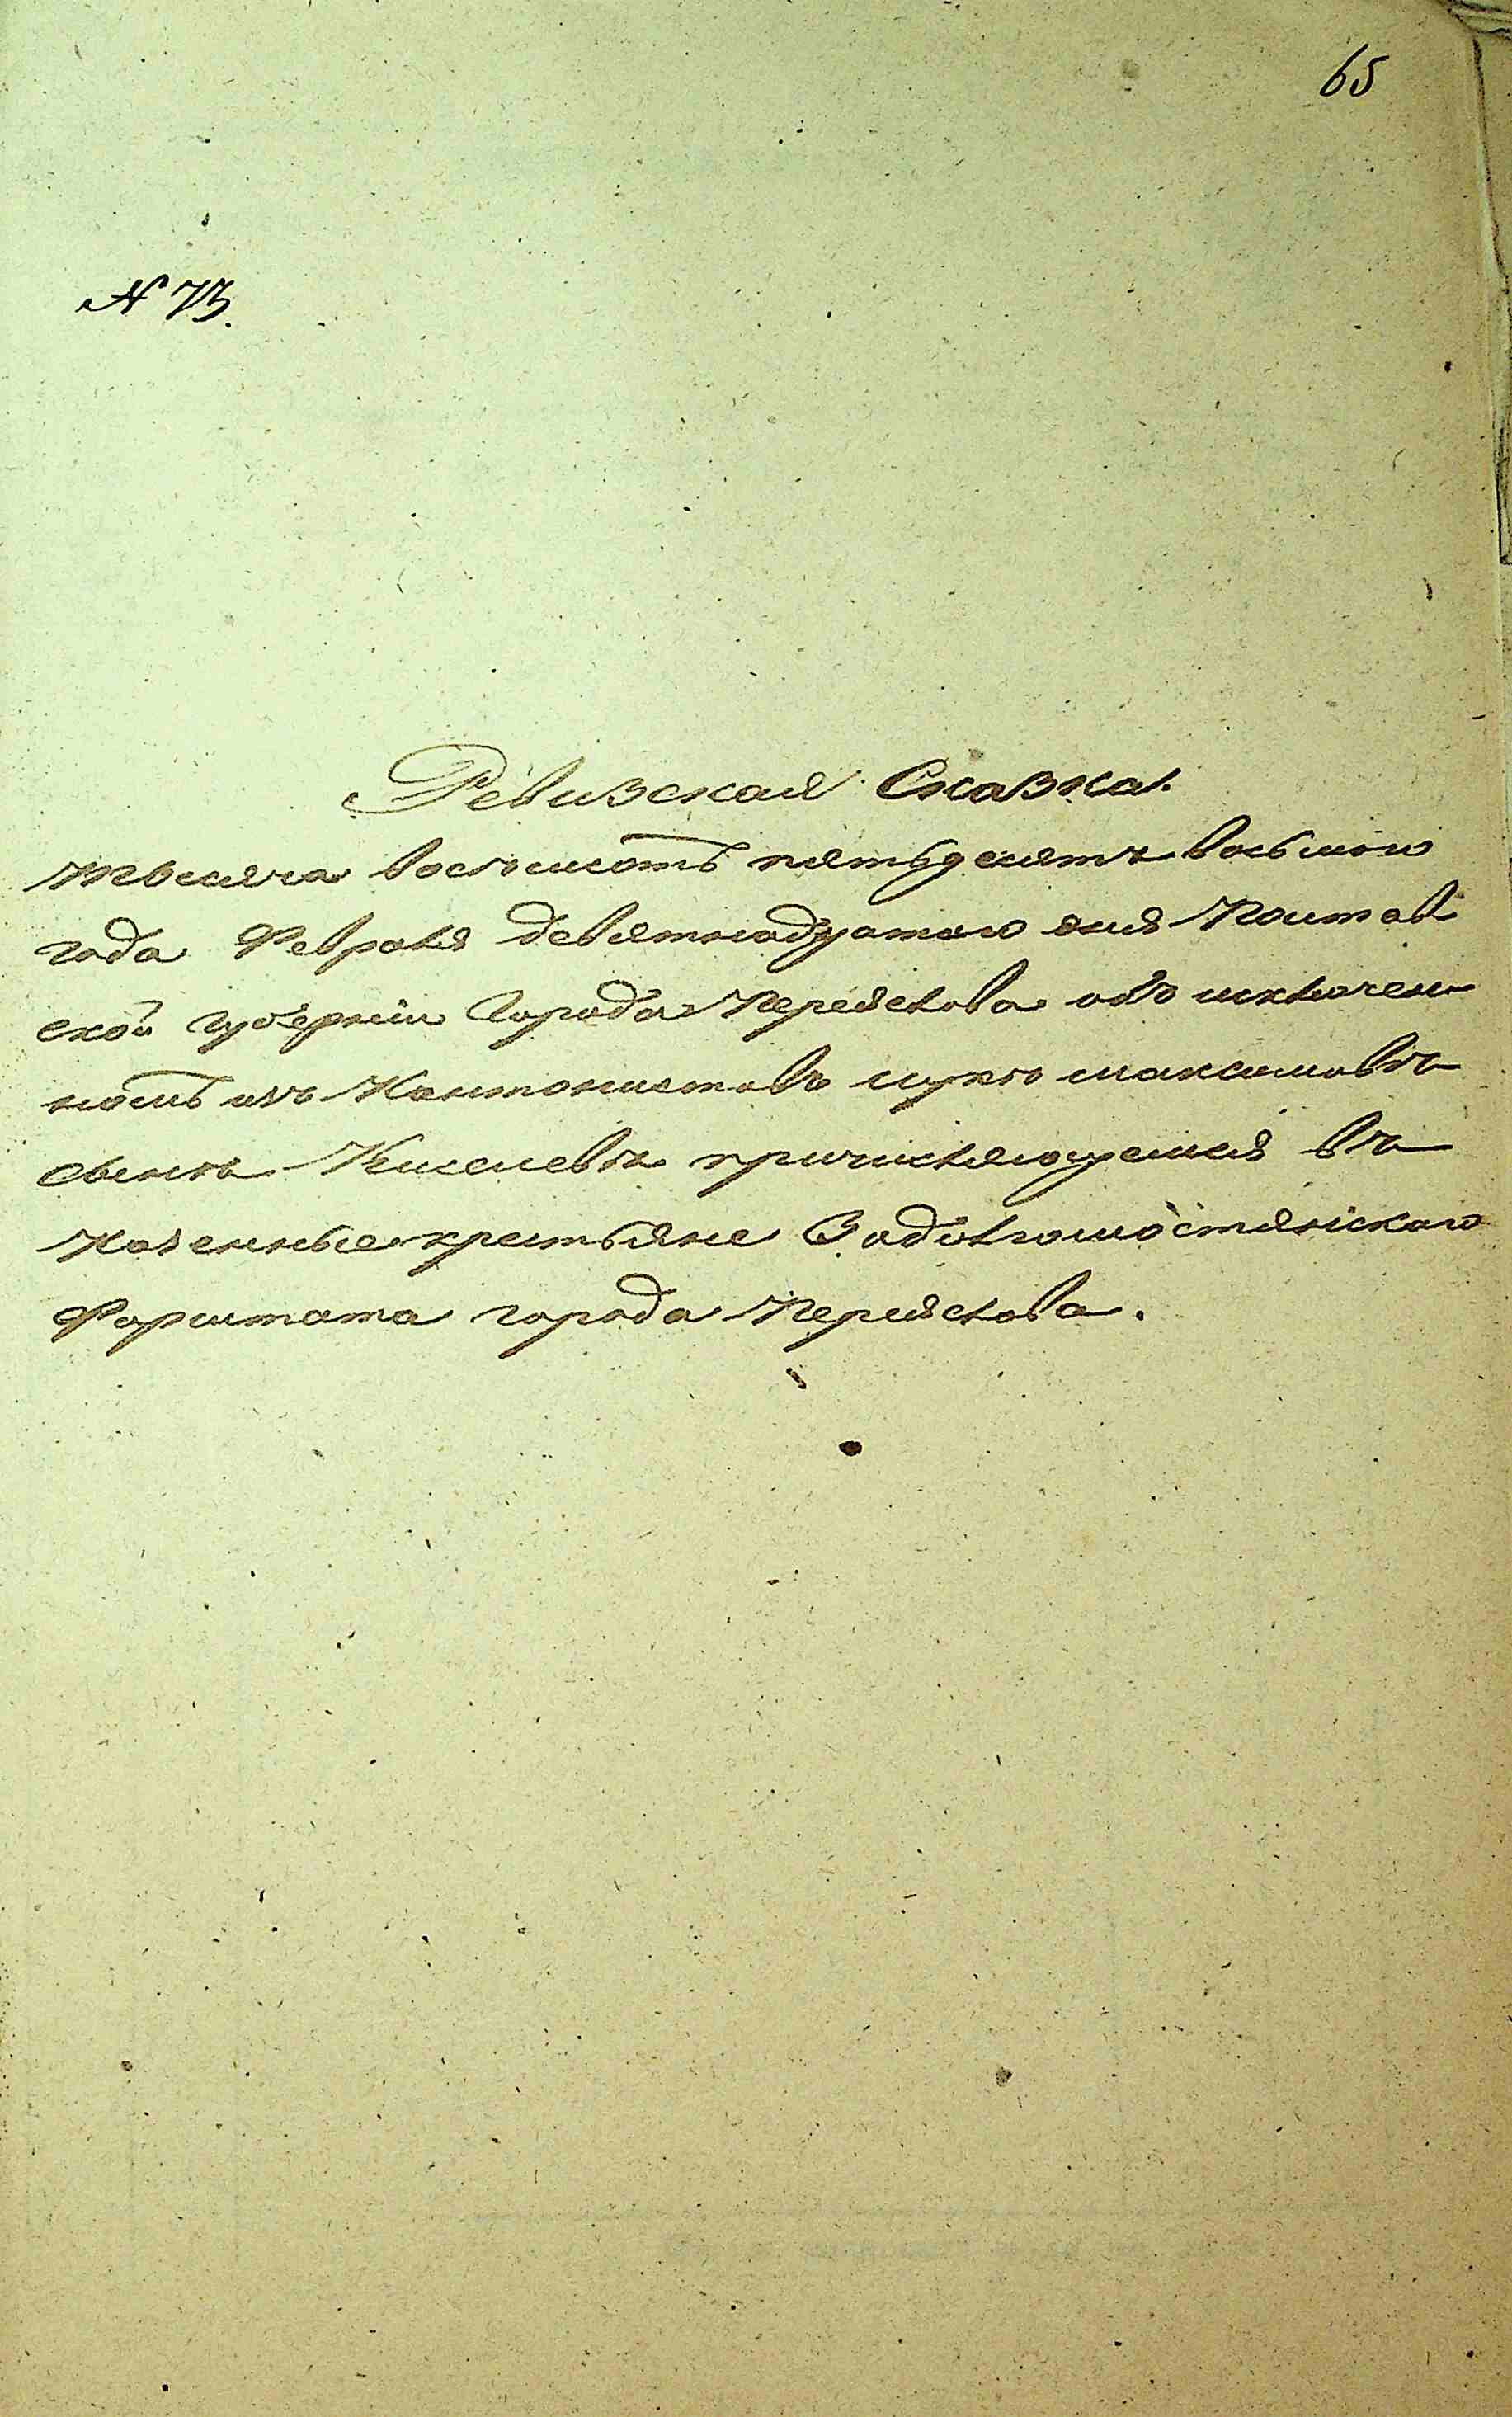 65
N 73.
Ревизская Сказка.
тысяча восемсотъ пятьдесятъ восьмого
года Февраля девятнадцатого дня Полтав
ской губерніи Города Переяслова объ исключен
номъ изъ Кантонистовъ сынъ Киселевъ причисляющемся въ
Казенные крестьяне
Форштата города Переяслова.